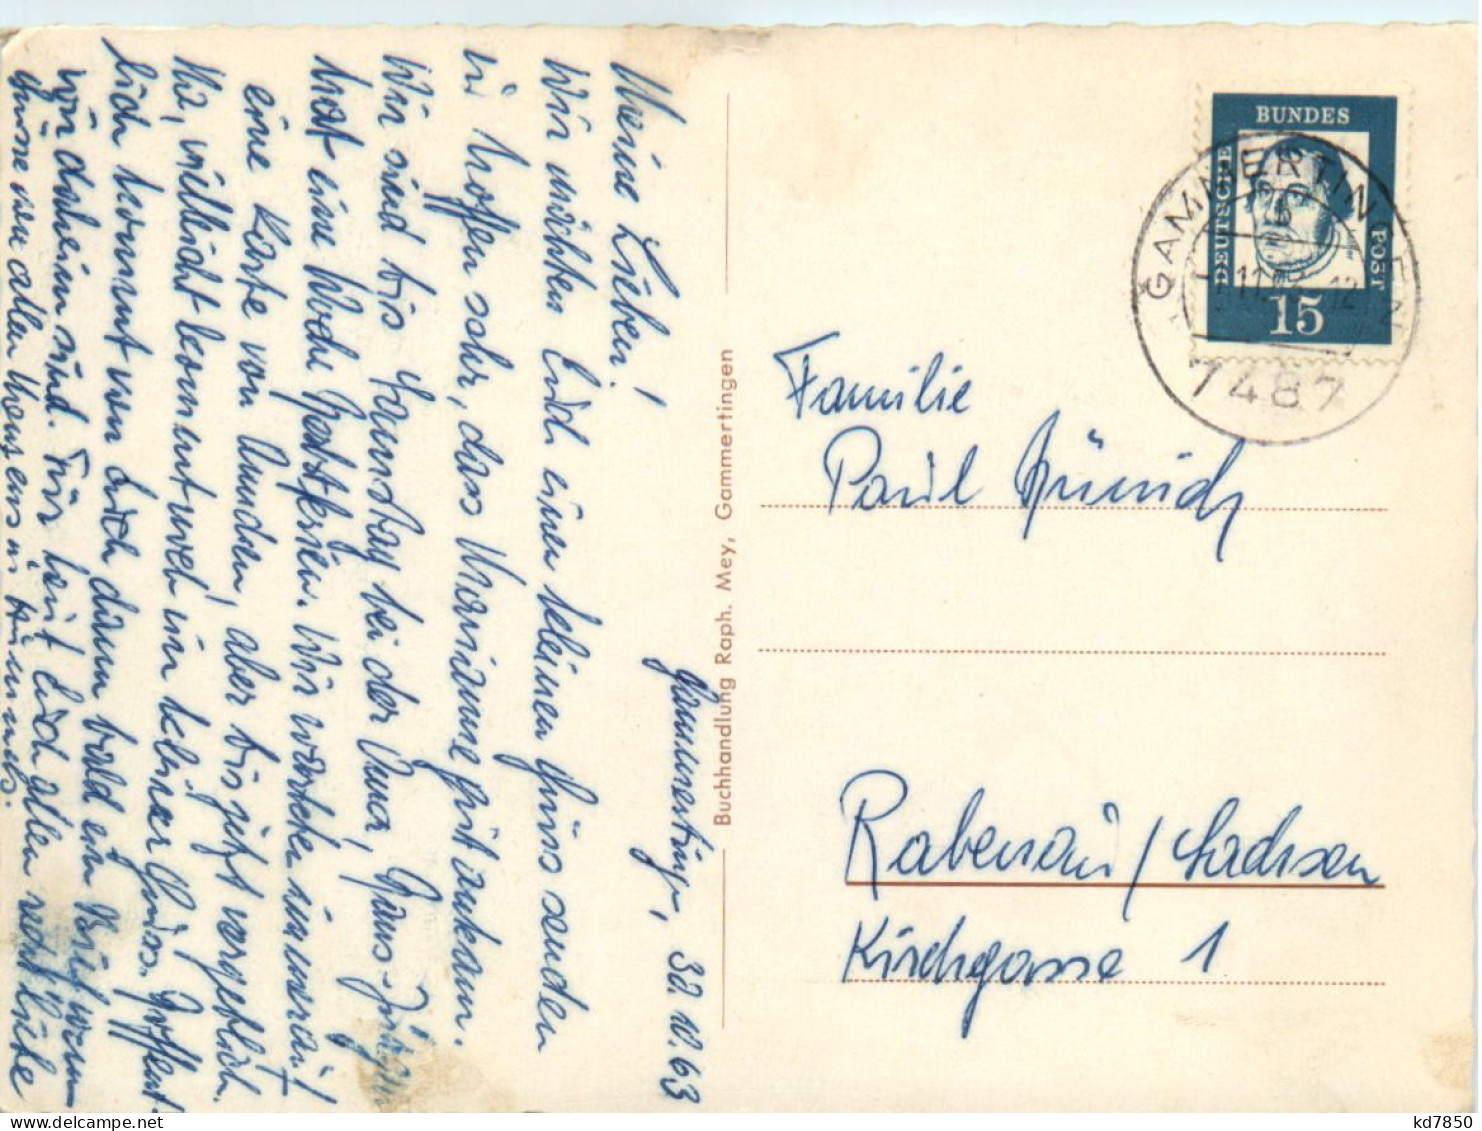 Gammertingen, 30.10.63
Meine Lieben!
Wir möchten Euch einen kleinen Gruss senden
u. hoffen sehr, dass Marianne gut ankam.
Wir sind bis Samstag bei der Oma, Hans-Jürgen
hat eine Woche Herbstferien. Wir warten immer auf
eine Karte von Omchen, aber bis jetzt vergeblich.
Na, vielleicht kommt noch ein kleiner Gruss. Hoffent-
lich kommt von Euch dann bald ein Brief wenn
wir daheim sind. Für heut Euch allen recht liebe
Grüsse von allen
Buchhandlung Raph. Mey, Gammertingen
DEUTSCHE BUNDESPOST
15
GAMMERTINGEN
7487
Familie
Paul Münich
Rabenau/Sachsen
Kirchgasse 1
kd7850